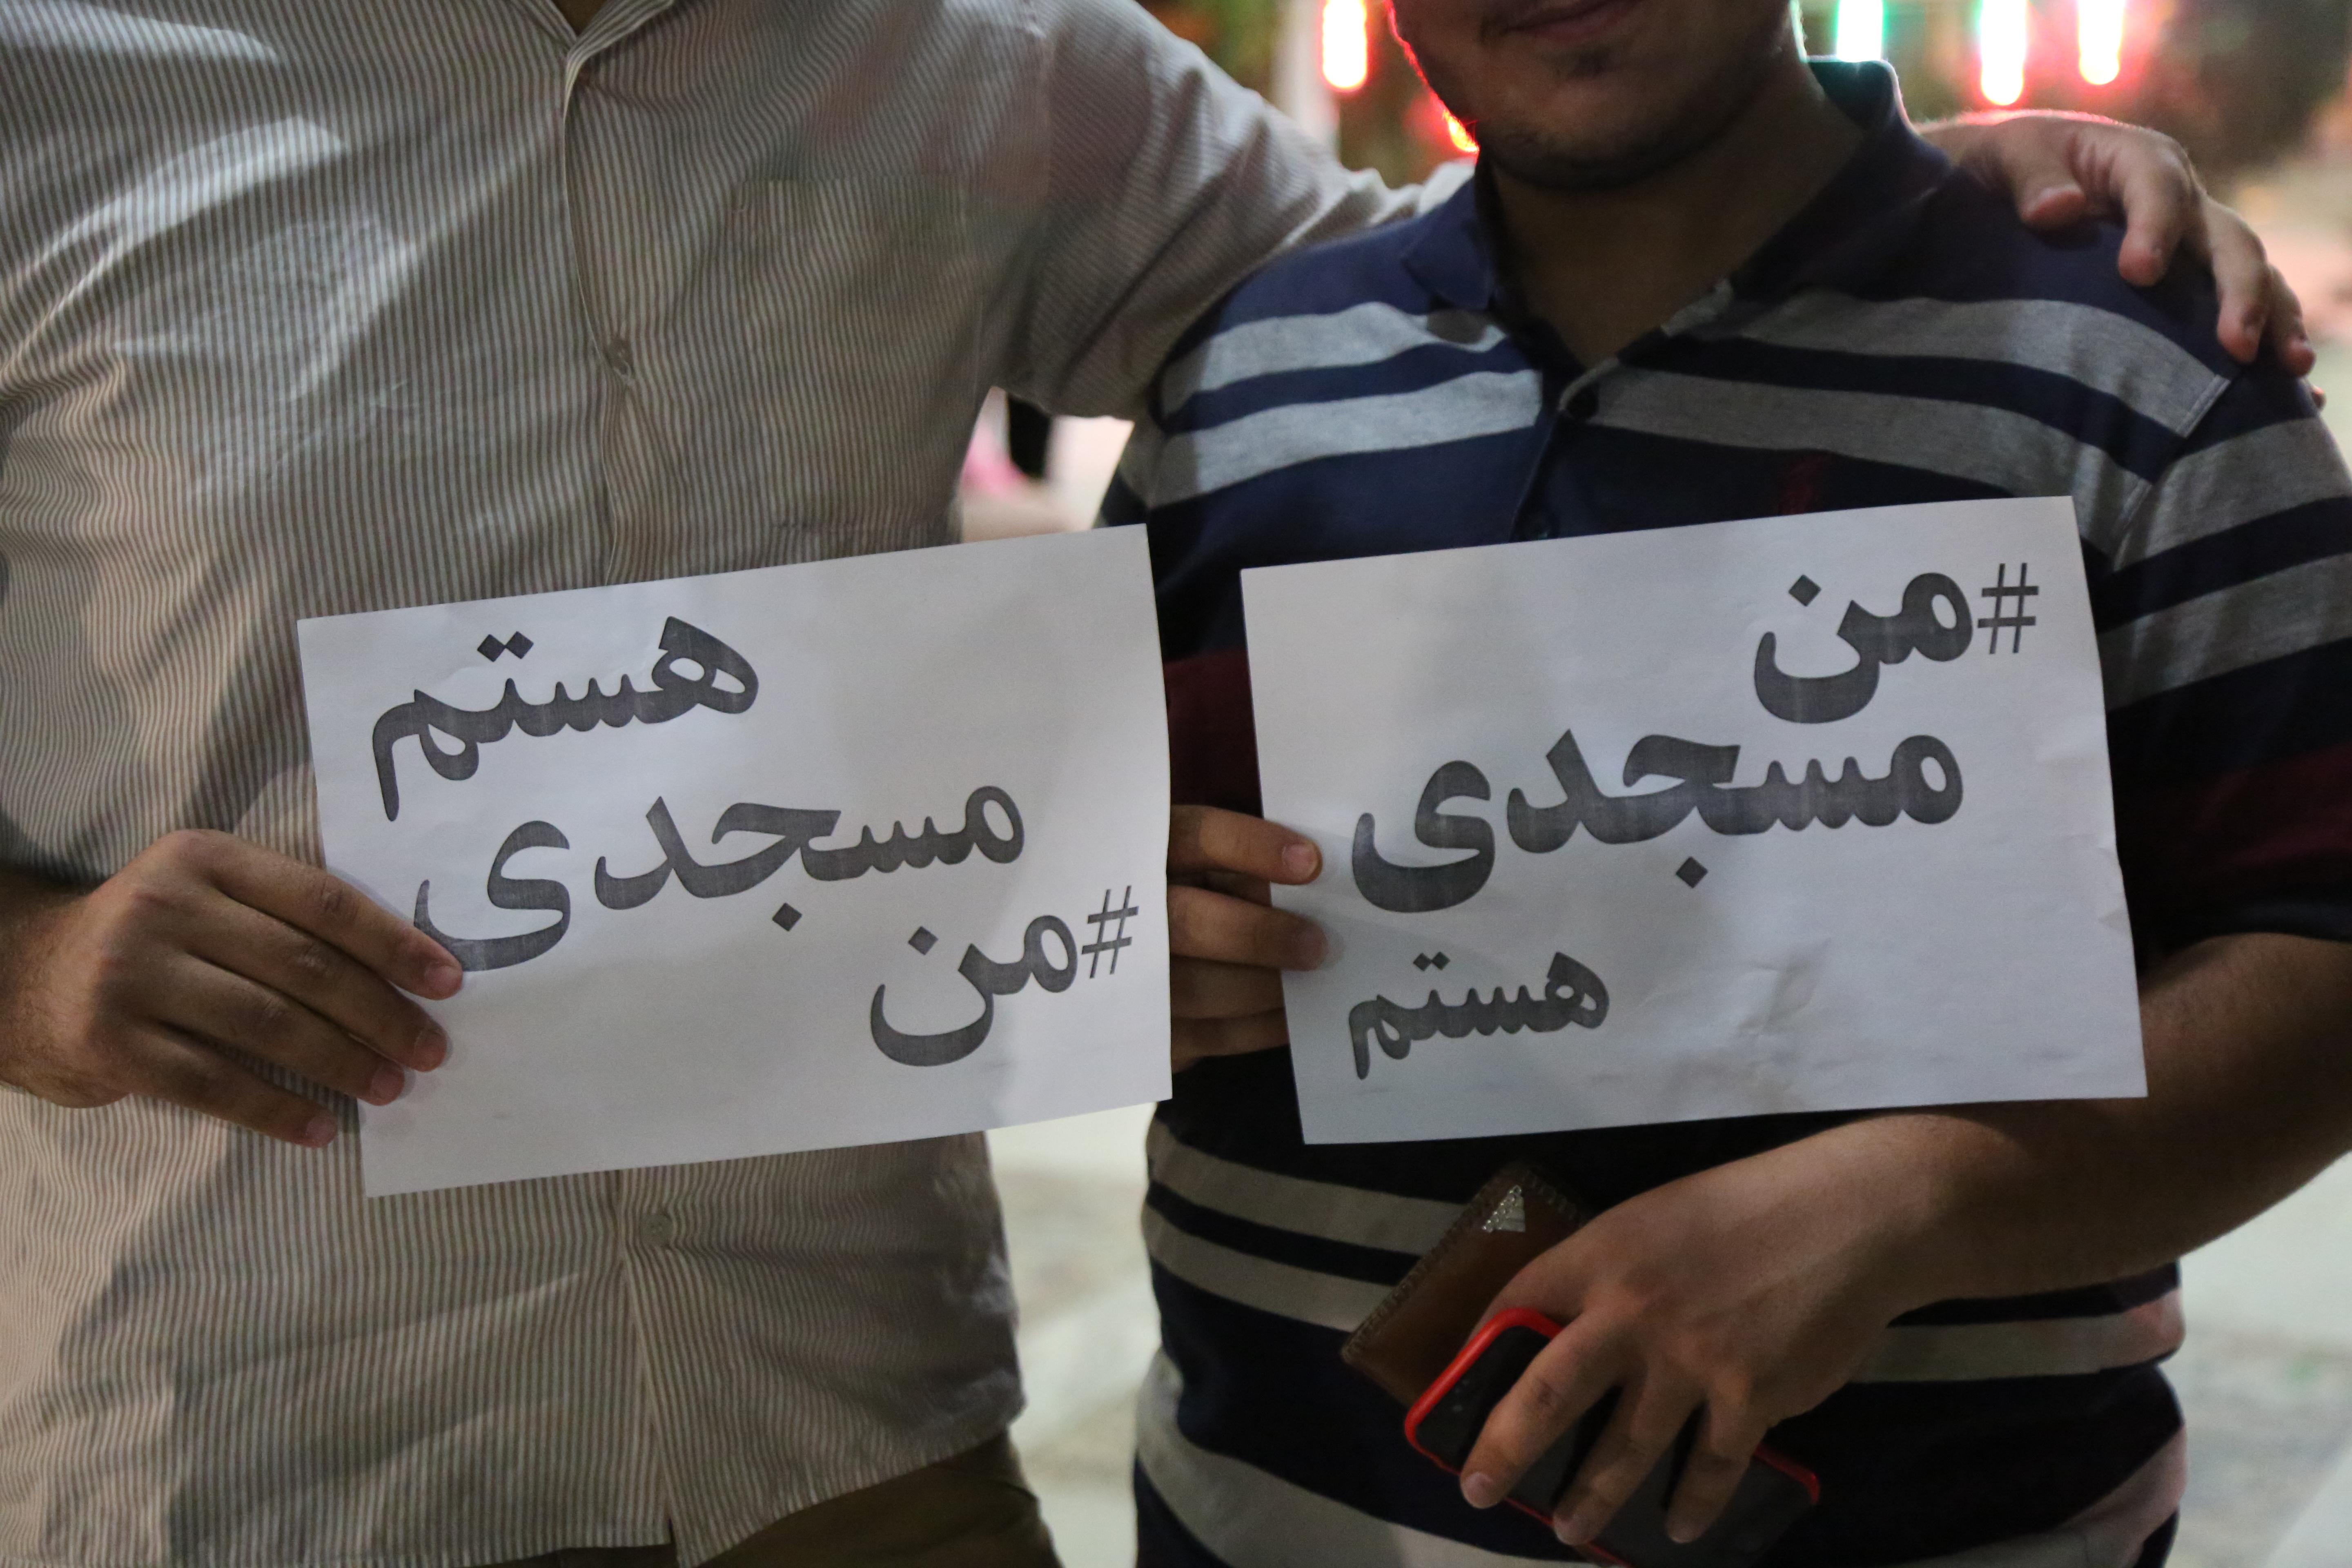 هستم
مسجدی
#من
#من
مسجدی
هستم